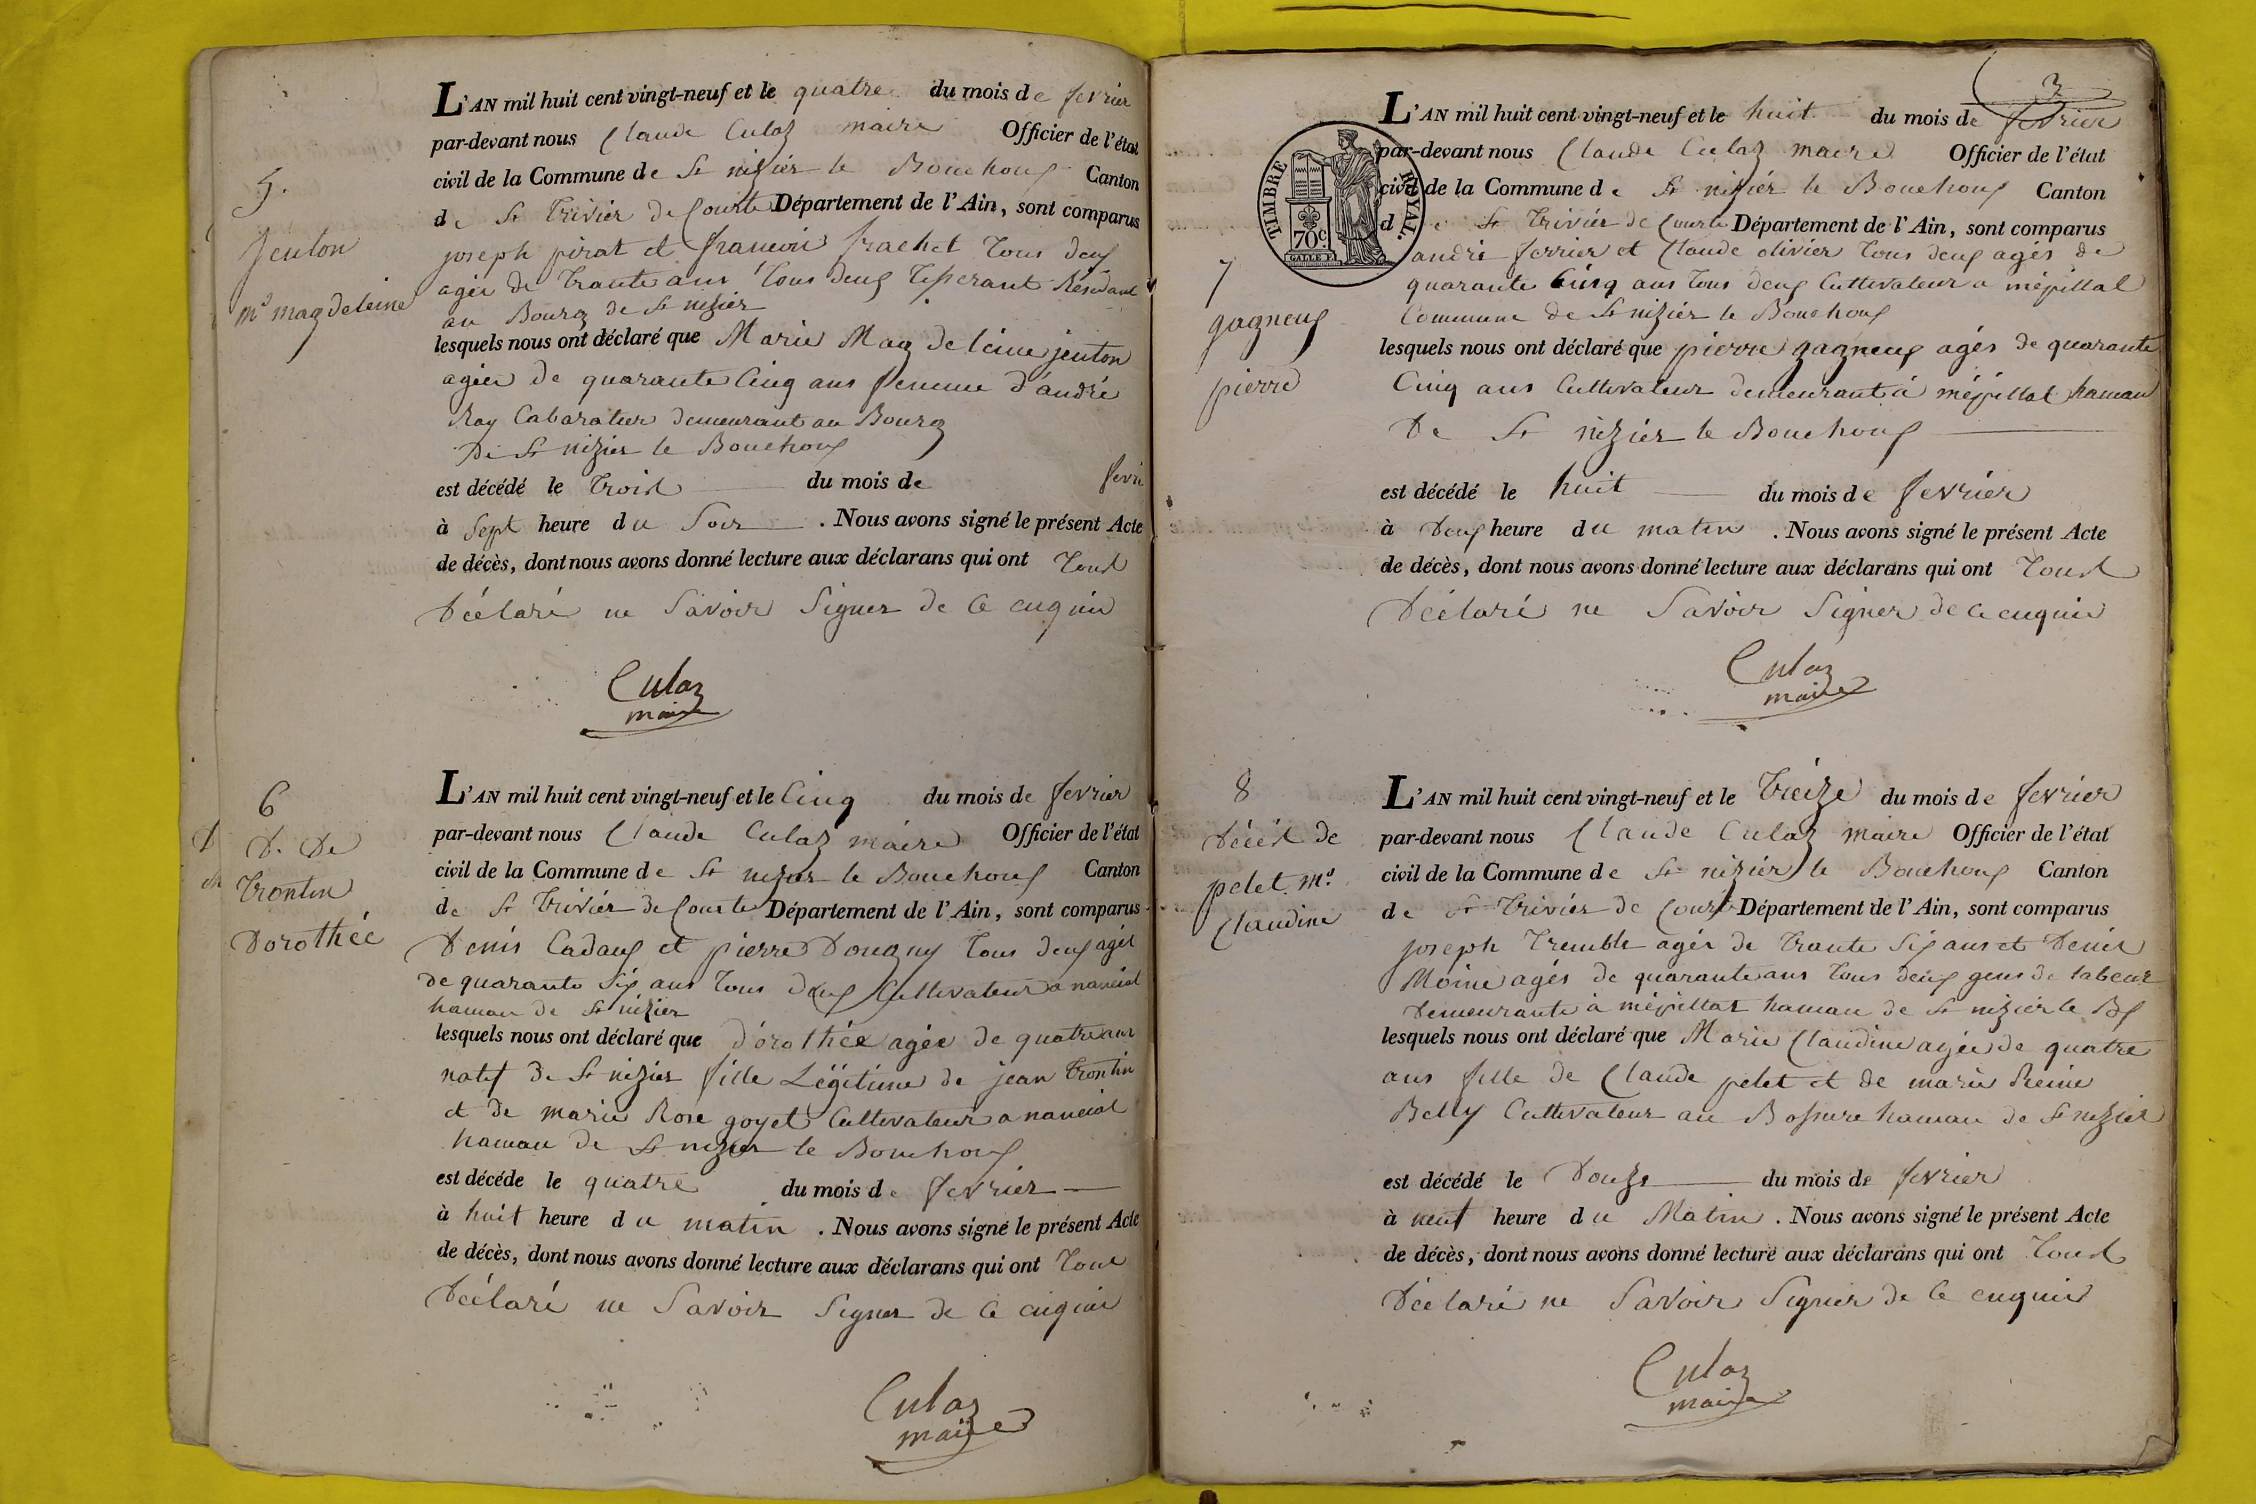 5.
jeuton
mie magdeleine
L'AN mil huit cent vingt-neuf et le quatre du mois de fevrier
par-devant nous Claude Culaz maire Officier de l'état
civil de la Commune de St nizier le Bouchoux Canton
de St Trivier de Courte Département de l'Ain, sont comparus
joseph pirat et francois frachet Tous deux
agée de Trante ans Tous deux Tisserant Résidant
au Bourg de St nizier
lesquels nous ont déclaré que Marie Mag deleine jeuton
agéer de quarante Cinq ans femme d'andré
Ray Cabaratier demeurant au Bourg
De St nizier le Bouchoux
est décédé le Trois du mois de fevri
à Sept heure du Soir. Nous avons signé le présent Acte
de décès, dont nous avons donné lecture aux déclarans qui ont Tous
Déclaré ne Savoir Signer de Ce enquis
Culaz
maire
6
D. De
Trontin
Dorothée
L'AN mil huit cent vingt-neuf et le Cinq du mois de fevrier
par-devant nous Claude Culaz maire Officier de l'état
civil de la Commune de St nizier le Bouchoux Canton
de St Trivier de Courte Département de l'Ain, sont comparus
Denis Cadaux et pierre Dougny Tous deux agés
de quarante Six ans Tous deux Cultivateur a nancial
hamau de St nizier
lesquels nous ont déclaré que dorothée agée de quatre ans
natif de St nizier fille Légitime de jean Trontin
et de marie Rose goyet Cultivateur a nancial
hamau de St nizier le Bouchoux
est décéde le quatre du mois de fevrier
à huit heure du matin. Nous avons signé le présent Acte
de décès, dont nous avons donné lecture aux déclarans qui ont Tous
Déclaré ne Savoir Signer de Ce enquis
Culaz
maire
3
TIMBRE ROYAL.
70c
7
gagneux
pierre
L'AN mil huit cent vingt-neuf et le huit du mois de fevrier
par-devant nous Claude Culaz maire Officier de l'état
civil de la Commune de St nizier le Bouchoux Canton
de St Trivier de Courte Département de l'Ain, sont comparus
andré ferrier et Claude olivier Tous deux agés de
quarante Cinq ans Tous deux Cultivateur a mépillat
Commune de St nizier le Bouchoux
lesquels nous ont déclaré que pierre gagneux agés de quarante
Cinq ans Cultivateur demeurant à mépillat hamau
De St nizier le Bouchoux
est décédé le huit du mois de fevrier
à Deux heure du matin. Nous avons signé le présent Acte
de décès, dont nous avons donné lecture aux déclarans qui ont Tous
Déclaré ne Savoir Signer de Ce enquis
Culaz
maire
8
Décès de
pelet mie
Claudine
L'AN mil huit cent vingt-neuf et le Treize du mois de fevrier
par-devant nous Claude Culaz maire Officier de l'état
civil de la Commune de St nizier le Bouchoux Canton
de St Trivier de Courte Département de l'Ain, sont comparus
joseph Tremble agér de Trante Six ans et Denis
Moine agés de quarante ans Tous deux gens de labeur
Demeurante à mépillat hamau de St nizier le Bx
lesquels nous ont déclaré que Marie Claudine agée de quatre
ans fille de Claude pelet et de marie Reine
Belly Cultivateur au Bossure hamau de St nizier
est décédé le Douze du mois de fevrier
à neuf heure du Matin. Nous avons signé le présent Acte
de décès, dont nous avons donné lecture aux déclarans qui ont Tous
Déclaré ne Savoir Signer de Ce enquis
Culaz
maire